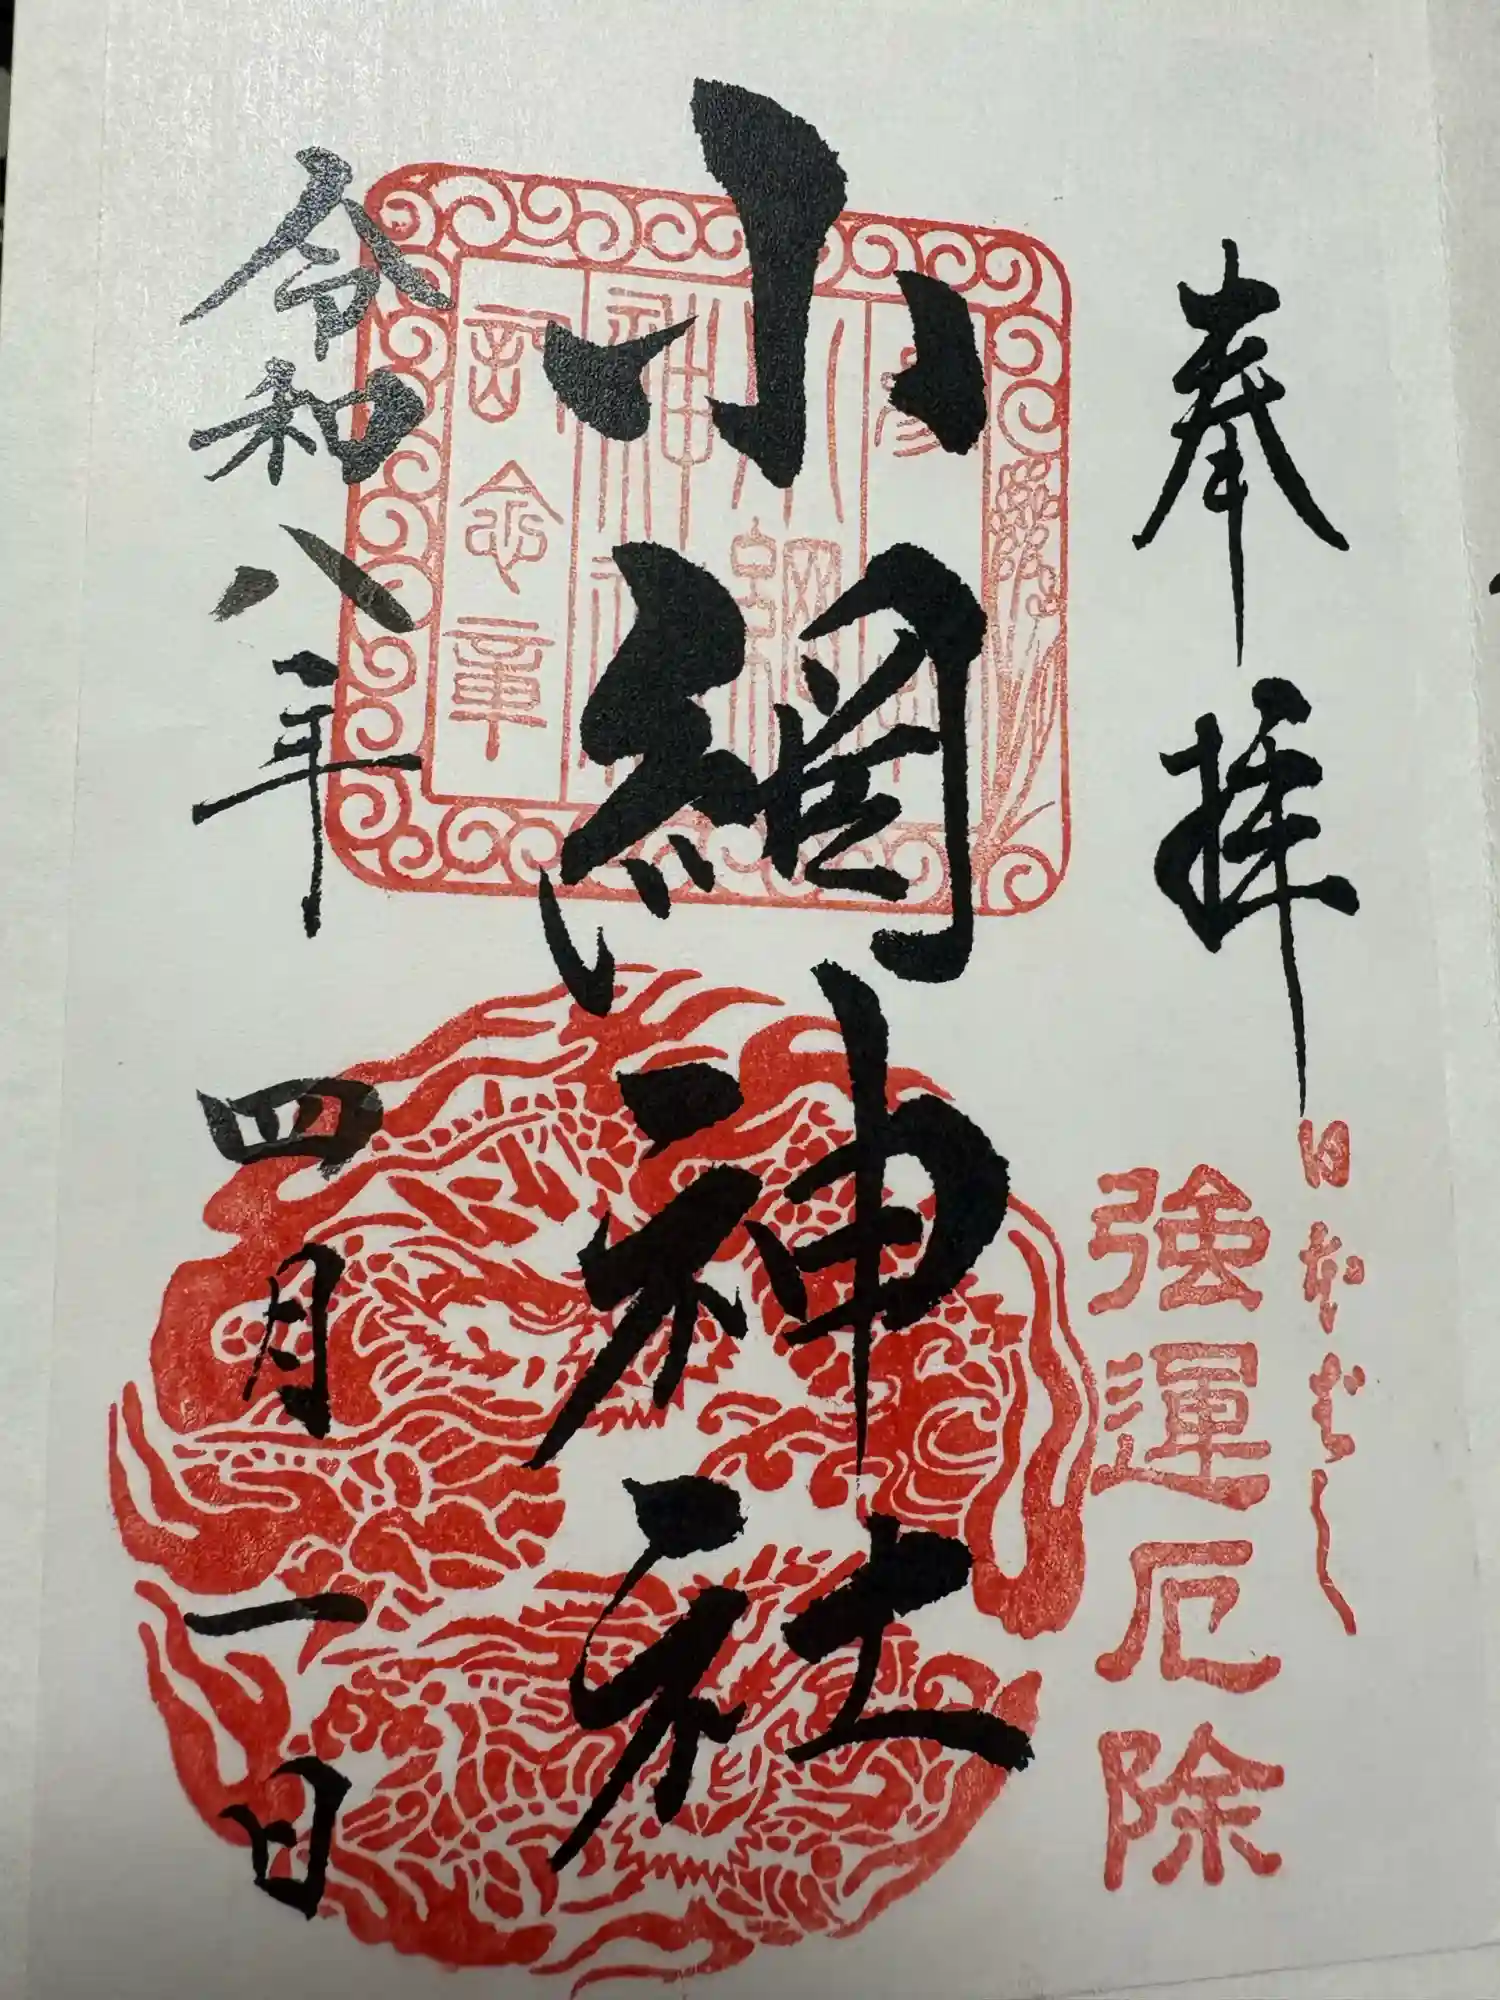 奉拝
日本ばし
強運厄除
小網神社
小網
神社
念章
令和八年四月一日